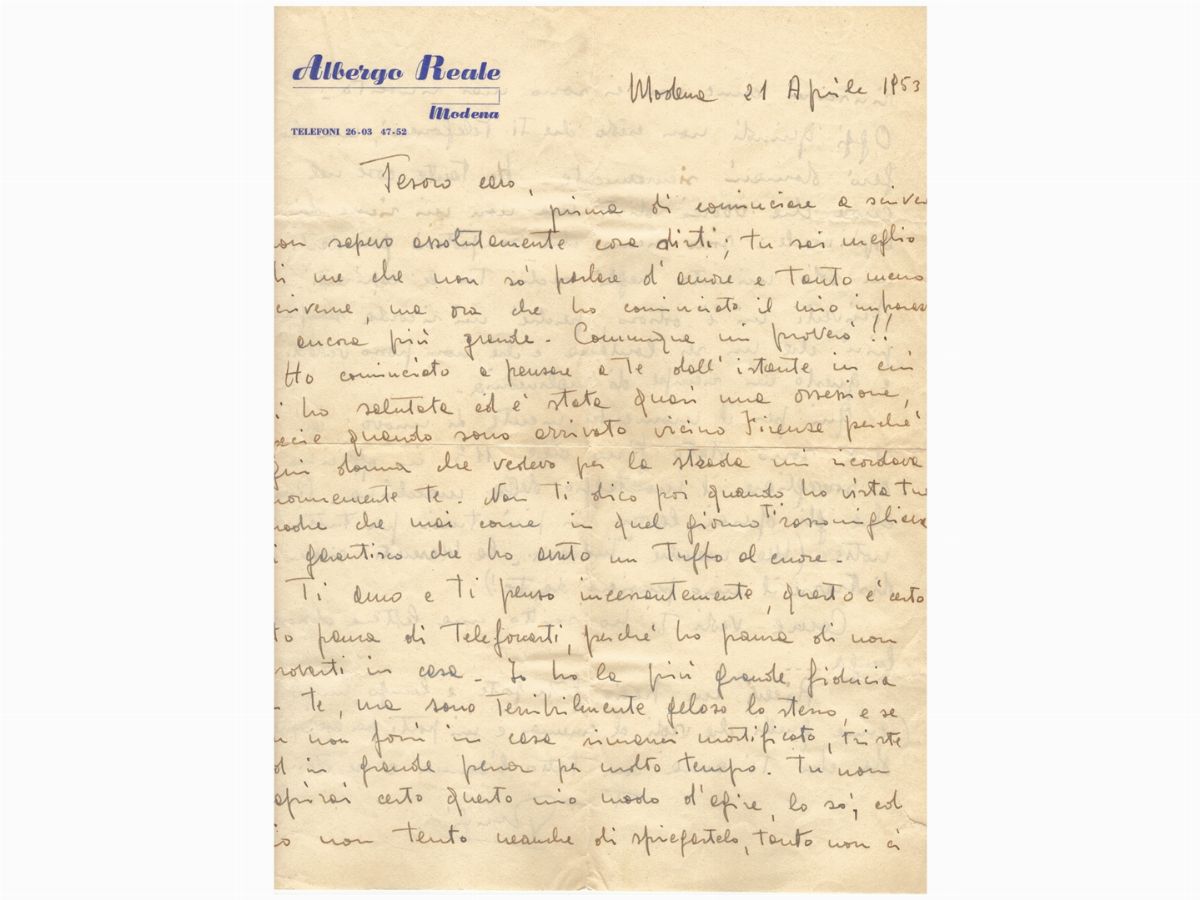 Albergo Reale
Modena
TELEFONI 26-03 47-52
Modena 21 Aprile 1953
Tesoro caro,
prima di cominciare a scrive
on sapevo assolutamente cosa dirti; tu sai meglio
di me che non so' parlare d'amore e tanto meno
criverne, ma ora che ho cominciato il mio imparazz
ancora più grande. Comunque mi proverò!!
Ho cominciato a pensare a Te dall'istante in cui
i ho salutata ed è stata quasi una ossessione,
pecie quando sono arrivato vicino Firenze perché
gni donna che vedevo per la strada mi ricordava
normemente te. Non Ti dico poi quando ho vista tua
madre che mai come in quel giorno Ti rassomigliava
i garantisco che ho avuto un tuffo al cuore.
Ti amo e Ti penso incessantemente, questo è certo
to paura di Telefonarti, perché ho paura di non
rovarti in casa. Io ho la più grande fiducia
n Te, ma sono Terribilmente geloso lo stesso, e se
u non fossi in casa rimarrei mortificato, triste
ed in grande pena per molto tempo. Tu non
apirai certo questo mio modo d'agire, lo so', ed
io non tento neanche di spiegartelo, tanto non ci